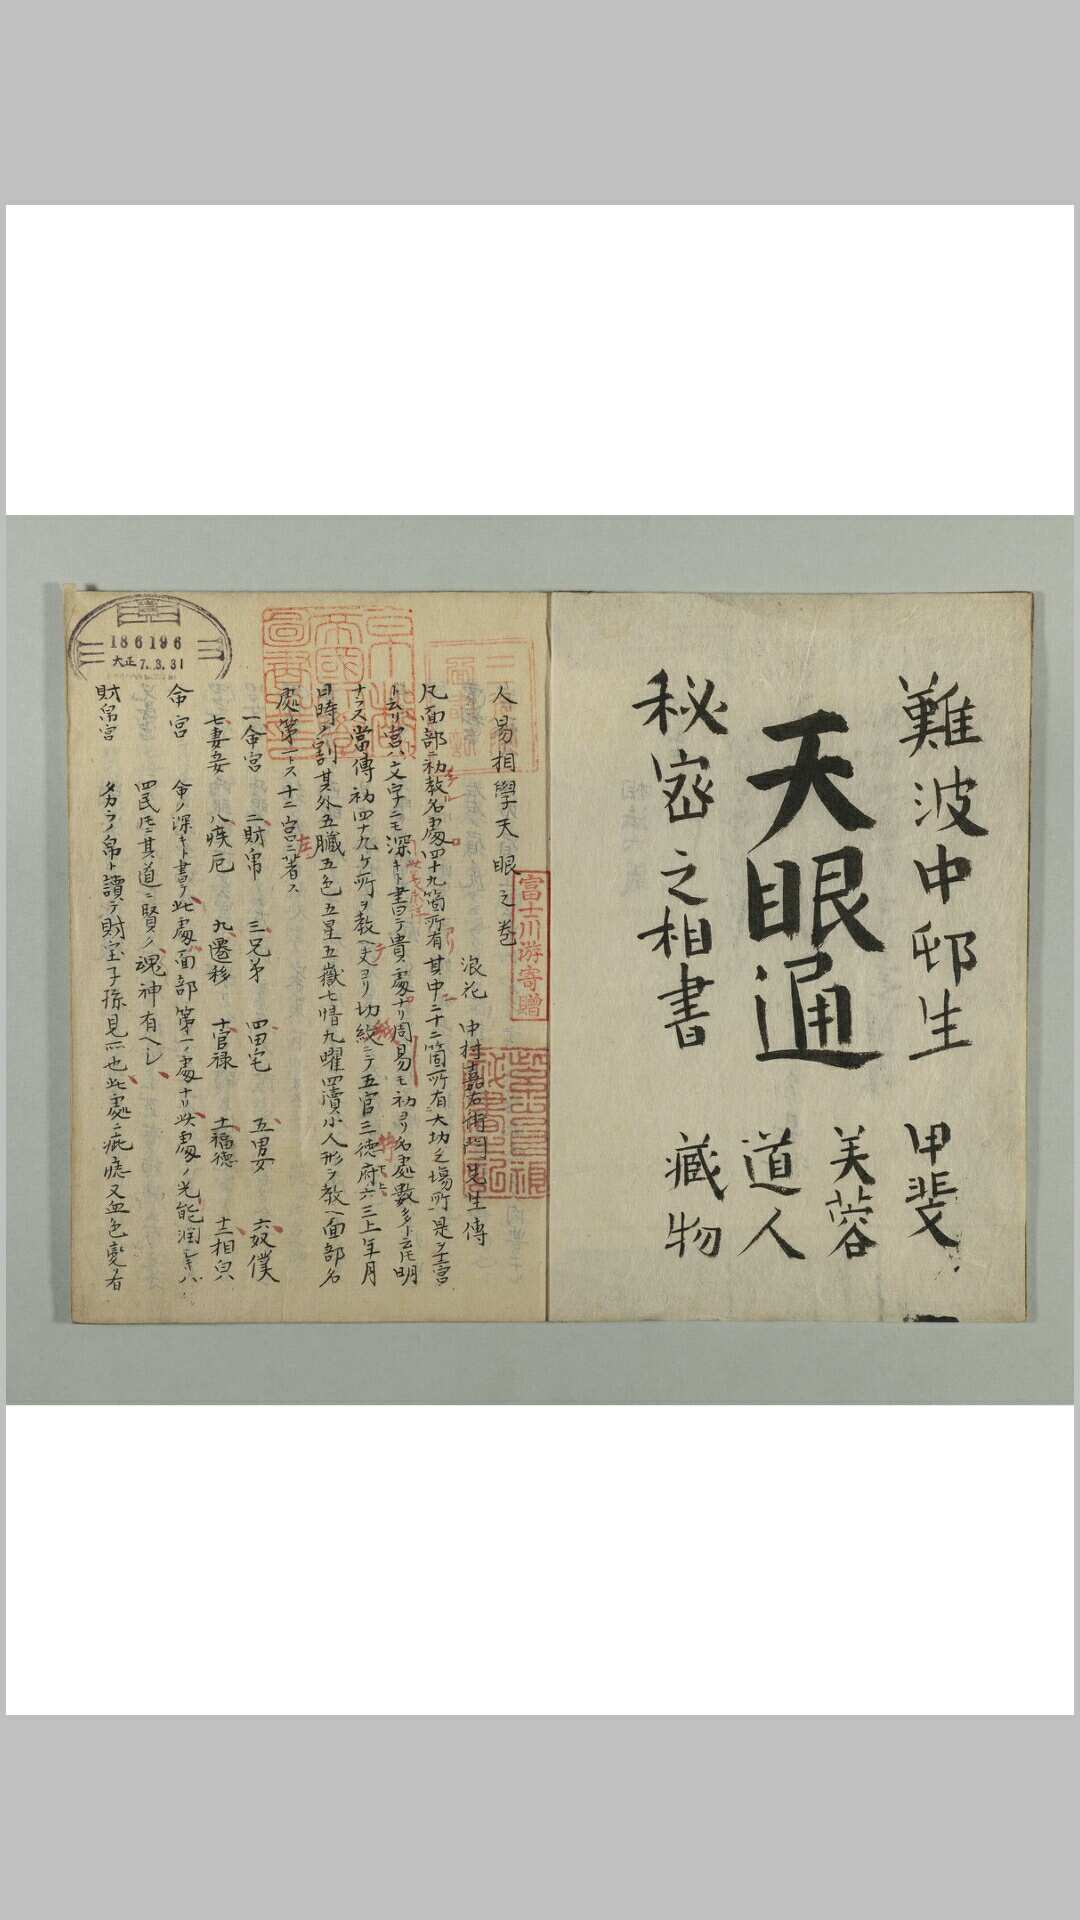 難波中邨生
天眼通
秘密之相書
甲斐
芙蓉
道人
藏物
人易相學天眼之巻
浪花 中村嘉右衛門先生傳
凡面部ニ初教名處四十九箇所有其中ニ十二箇所有大切之場所是ヲ十二宮
ト云リ宮ハ文字ニモ深キト書テ貴處ナリ周易モ初ヨリ名處數多ト云ヘ𪜈明
ナラス當傳初四十九ケ所ヲ教ヘ夫ヨリ切紋ニテ五官三徳府六三上年月
日時ノ割其外五臟五色五星五嶽七情九曜四瀆小人形ヲ教ヘ面部名
處第一トス十二宮ニ著ス
一命宮 二財帛 三兄弟 四田宅 五男女 六奴僕
七妻妾 八疾厄 九遷移 十官禄 十一福德 十二相皃
命宮 命ノ深キト書テ此處面部第一ノ處ナリ此處ノ光能潤キハ
四民𪜈其道ニ賢ク魂神有ヘシ
財帛宮 タカラノ帛ト讀テ財宝子孫見所也此處ニ疵痣又血色變有
富士川游寄贈
京都帝國大學圖書之印
186196
大正7.3.31